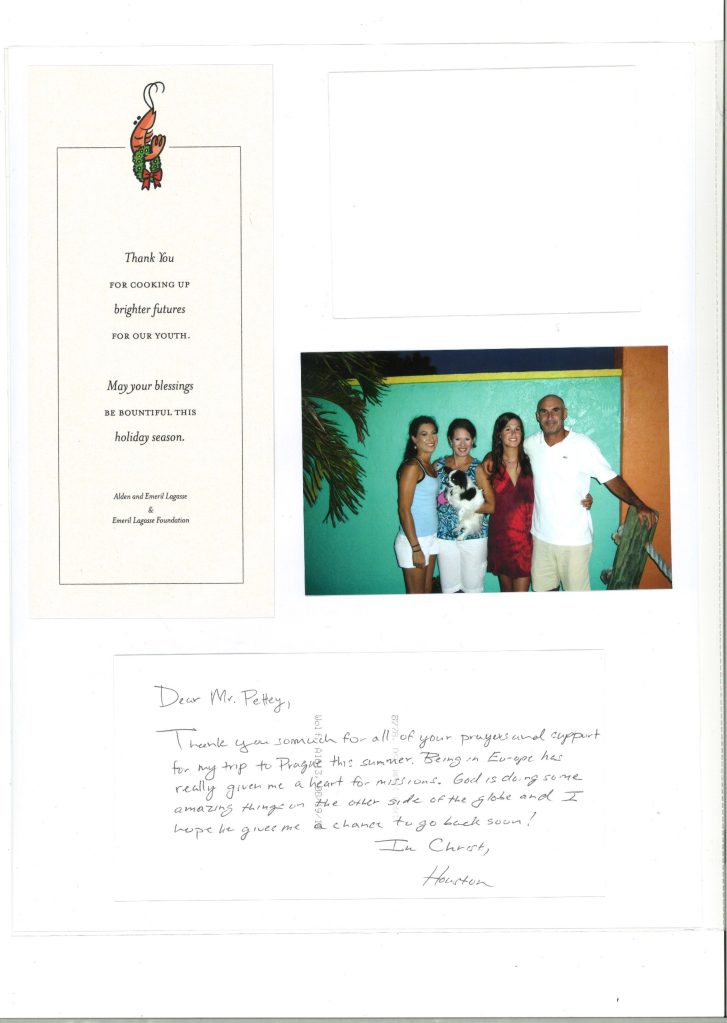 Thank You
FOR COOKING UP
brighter futures
FOR OUR YOUTH.
May your blessings
BE BOUNTIFUL THIS
holiday season.
Alden and Emeril Lagasse
&
Emeril Lagasse Foundation
Dear Mr. Pettey,
Thank you somuch for all of your prayers and support
for my trip to Prague this summer. Being in Europe has
really given me a heart for missions. God is doing some
amazing things on the other side of the globe and I
hope he gives me a chance to go back soon!
In Christ,
Houston